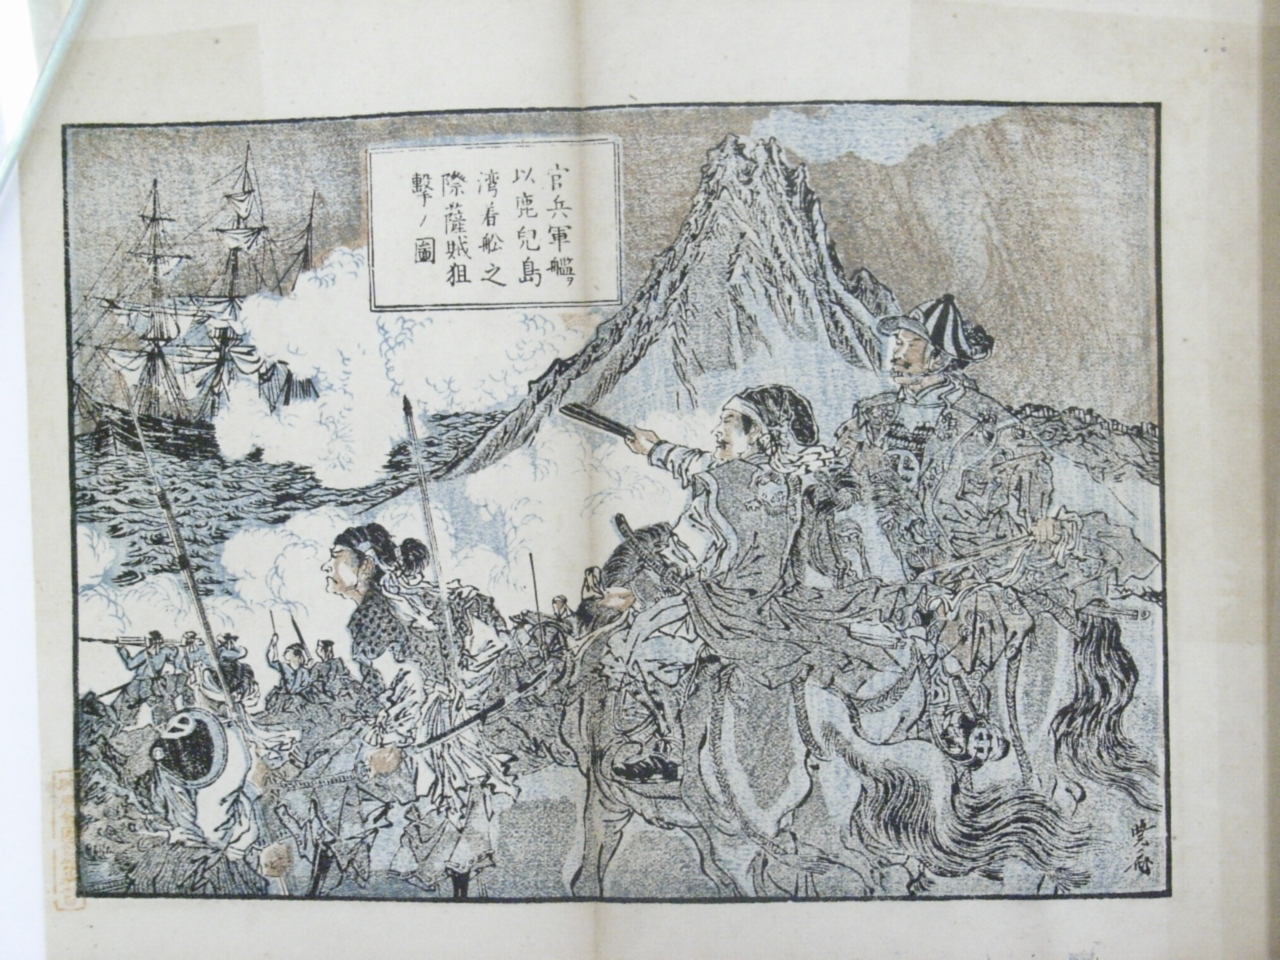 官兵軍艦ヲ
以鹿兒島
湾着舩之
際薩賊狙
撃ノ圖
暁斎